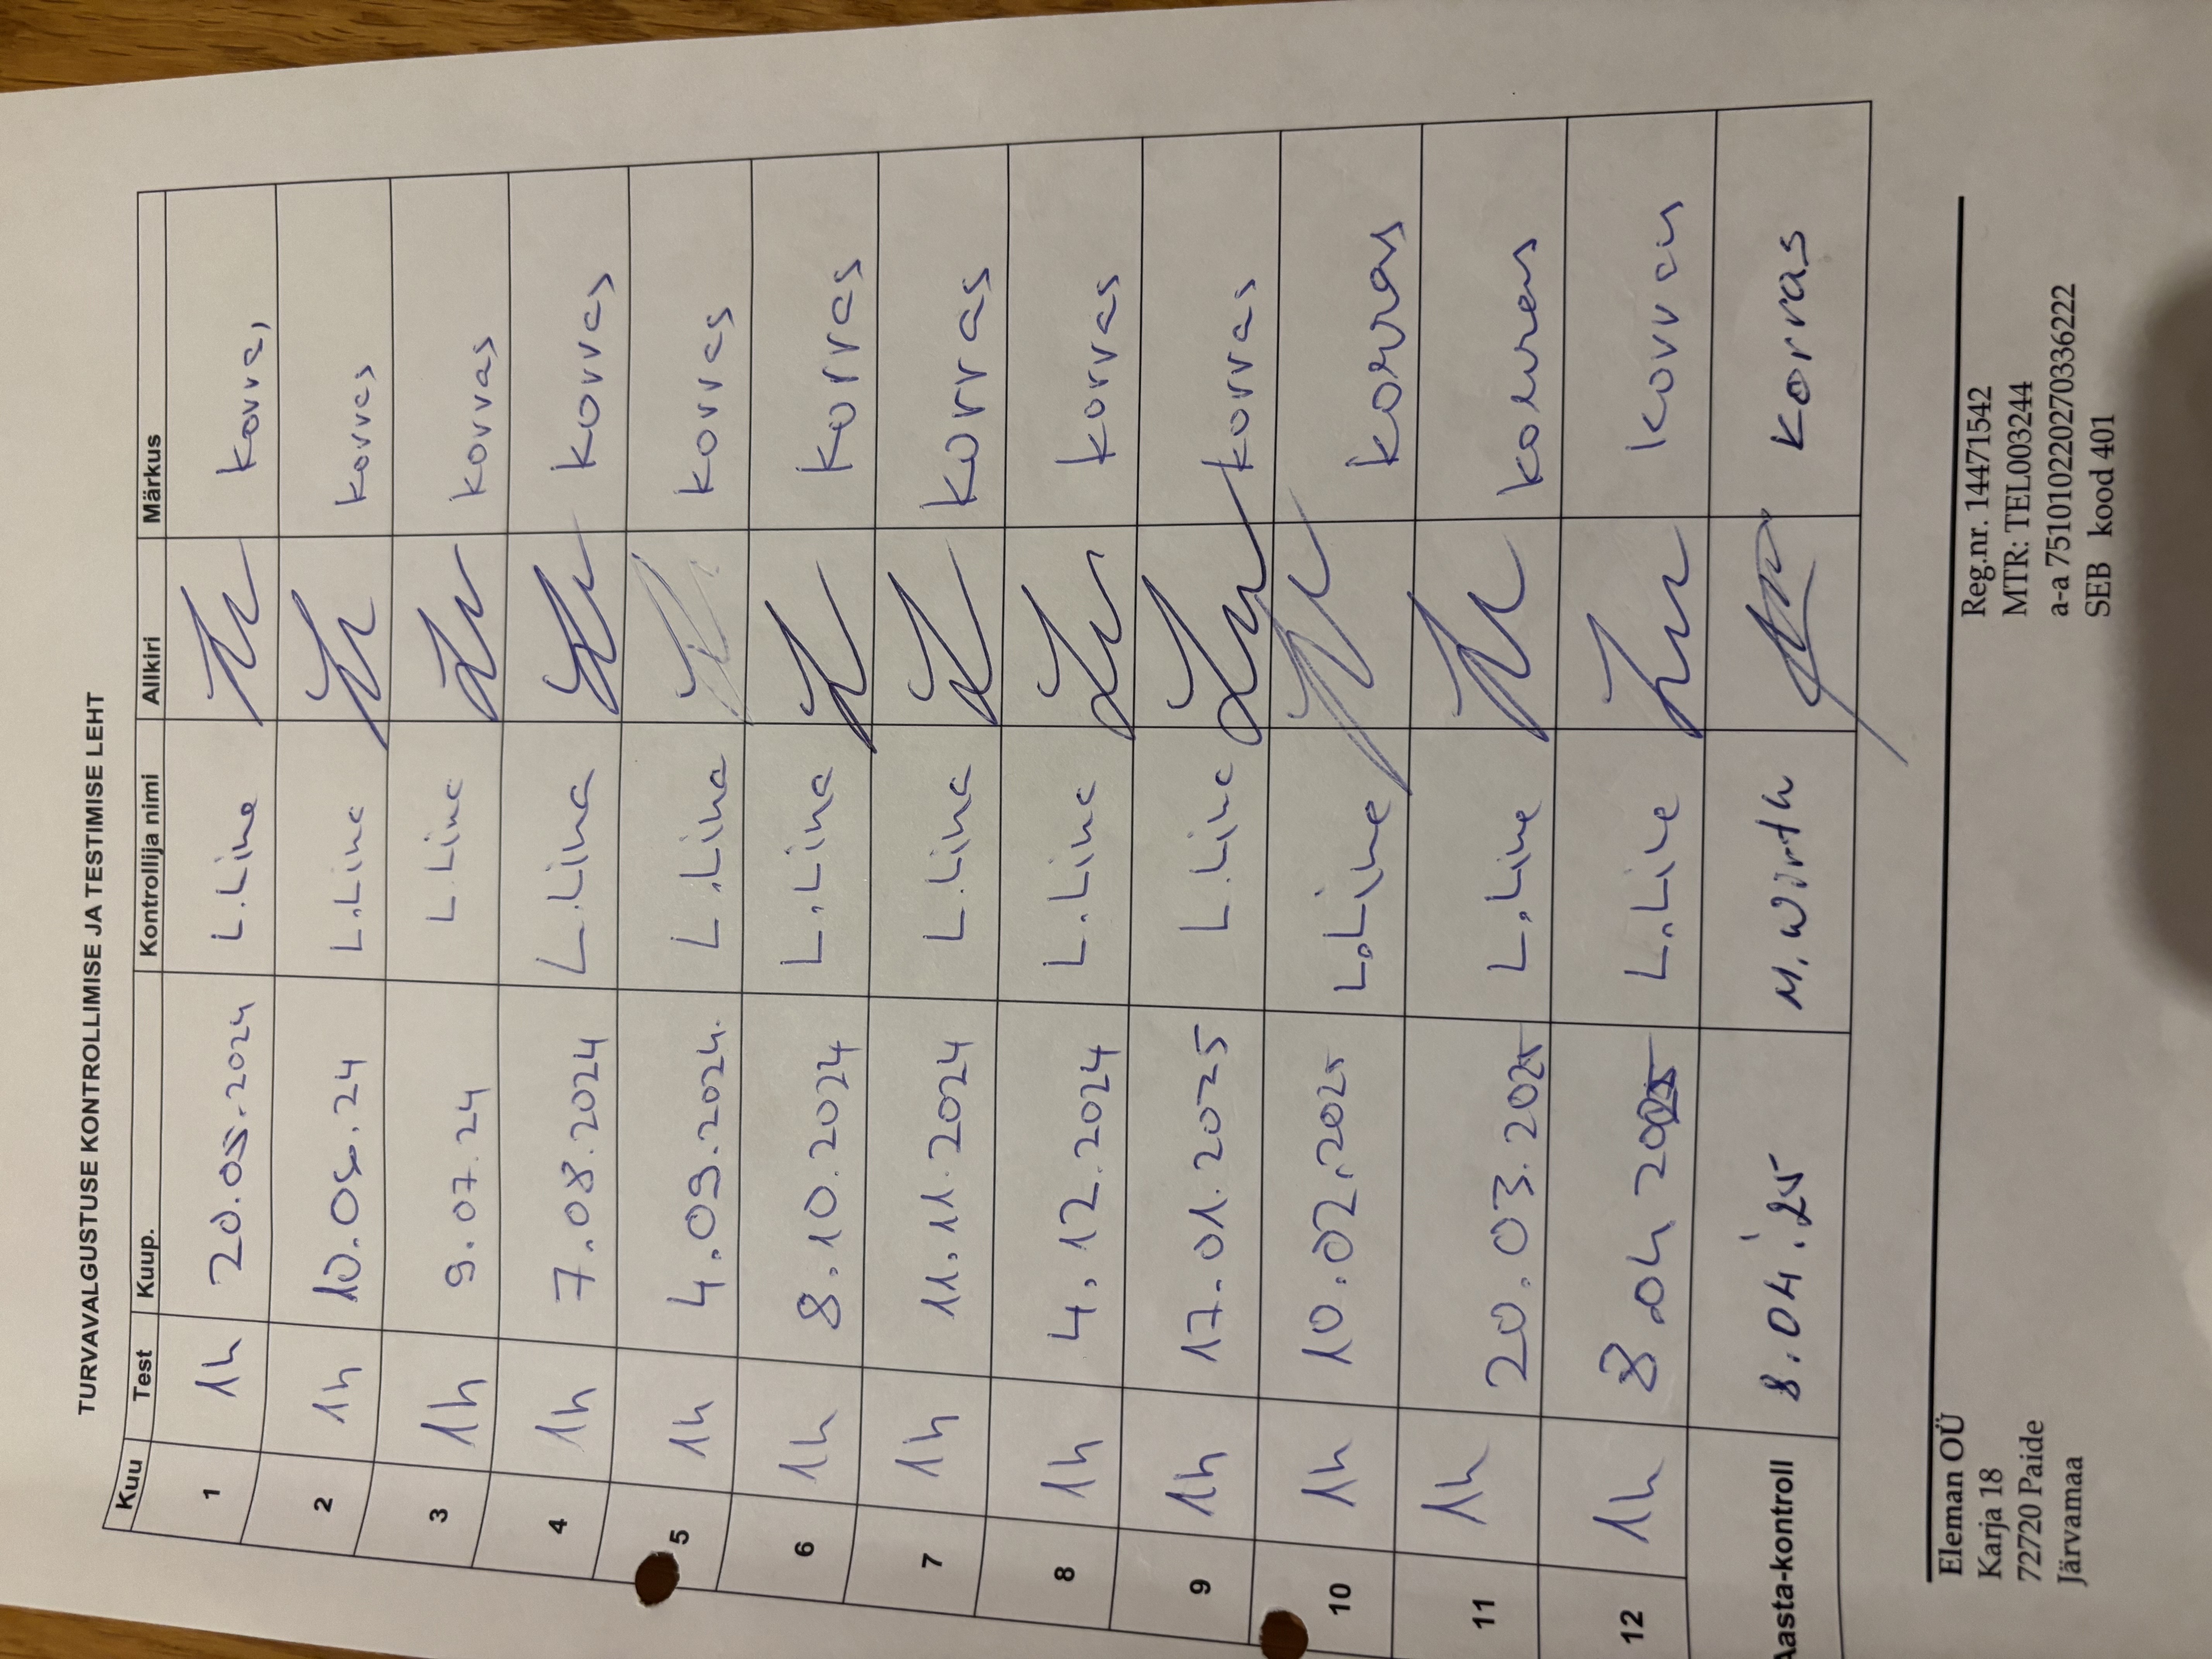 TURVAVALGUSTUSE KONTROLLIMISE JA TESTIMISE LEHT
Kuu Test Kuup. Kontrollija nimi Allkiri Märkus
1 1h 20.05.2024 L.Line korras
2 1h 10.06.24 L.Line korras
3 1h 9.07.24 L.Line korras
4 1h 7.08.2024 L.Lina korras
5 1h 4.09.2024. L.Lina korras
6 1h 8.10.2024 L.Lina korras
7 1h 11.11.2024 L.Lina korras
8 1h 4.12.2024 L.Line korras
9 1h 17.01.2025 L.Line korras
10 1h 10.02.2025 L.Line korras
11 1h 20.03.2025 L.Line korras
12 1h 8.04 2025 L.Line korras
Aasta-kontroll 8.04.25 M. Wirth korras
Eleman OÜ
Karja 18
72720 Paide
Järvamaa
Reg.nr. 14471542
MTR: TEL003244
a-a 751010220270336222
SEB kood 401